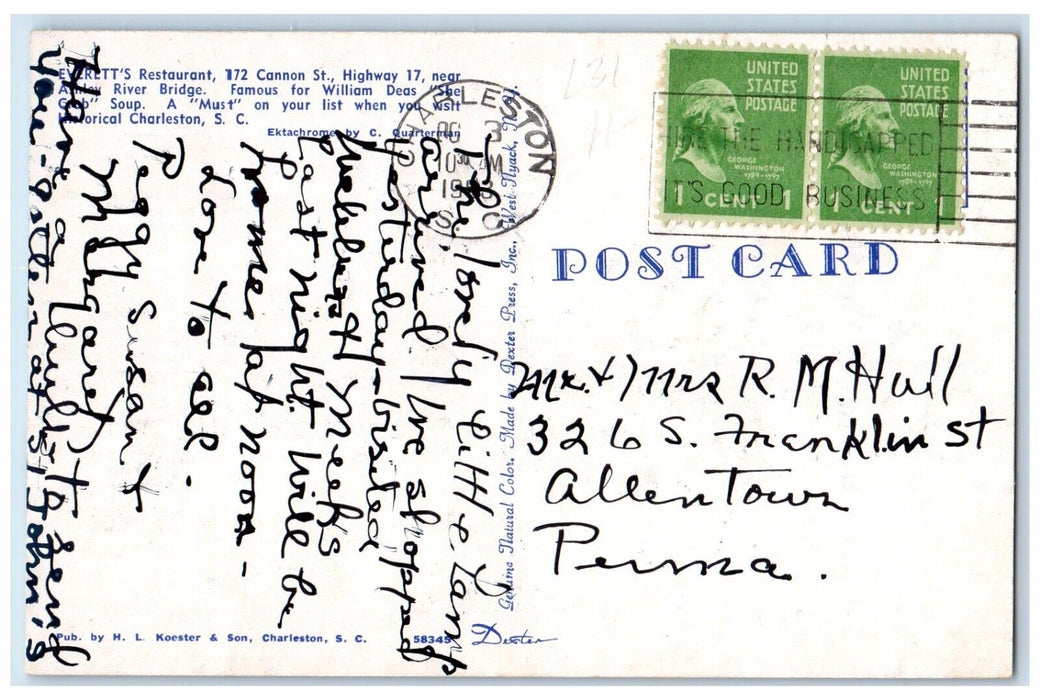 EVERETT'S Restaurant, 172 Cannon St., Highway 17, near
Ashley River Bridge. Famous for William Deas "She
Crab" Soup. A "Must" on your list when you visit
Historical Charleston, S. C.
Ektachrome by C. Quarterman
CHARLESTON
3
10 30 AM
S C
UNITED
STATES
POSTAGE
GEORGE
WASHINGTON
1789-1797
1 CENT 1
UNITED
STATES
POSTAGE
GEORGE
WASHINGTON
1789-1797
1 CENT 1
HIRE THE HANDICAPPED
IT'S GOOD BUSINESS
POST CARD
Mr. & Mrs R. M. Hail
326 S. Franklin St
Allentown
Penna.
The lovely little lamp
arrived. We stopped
yesterday - visited
Meeks
last night. Will be
home at noon -
Love to all -
Peggy Susan &
Margaret
Have a build to send
you - gotten at St John's
Genuine Natural Color. Made by Dexter Press, Inc., West Nyack, N. Y.
Pub. by H. L. Koester & Son, Charleston, S. C.
58345
Dexter